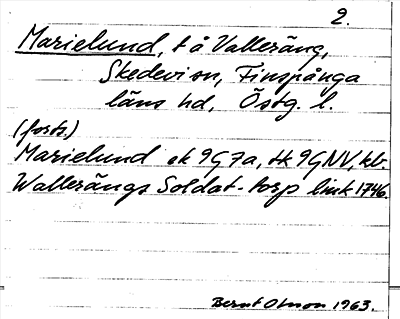 2.
Marielund, t å Valleräng,
Skedevi sn, Finspånga
läns hd, Östg. l.
(forts.)
Marielund ek 9G7a, tk 9GNV, kb.
Wallerängs Soldat-torp link 1746.
Bernt Olsson 1963.